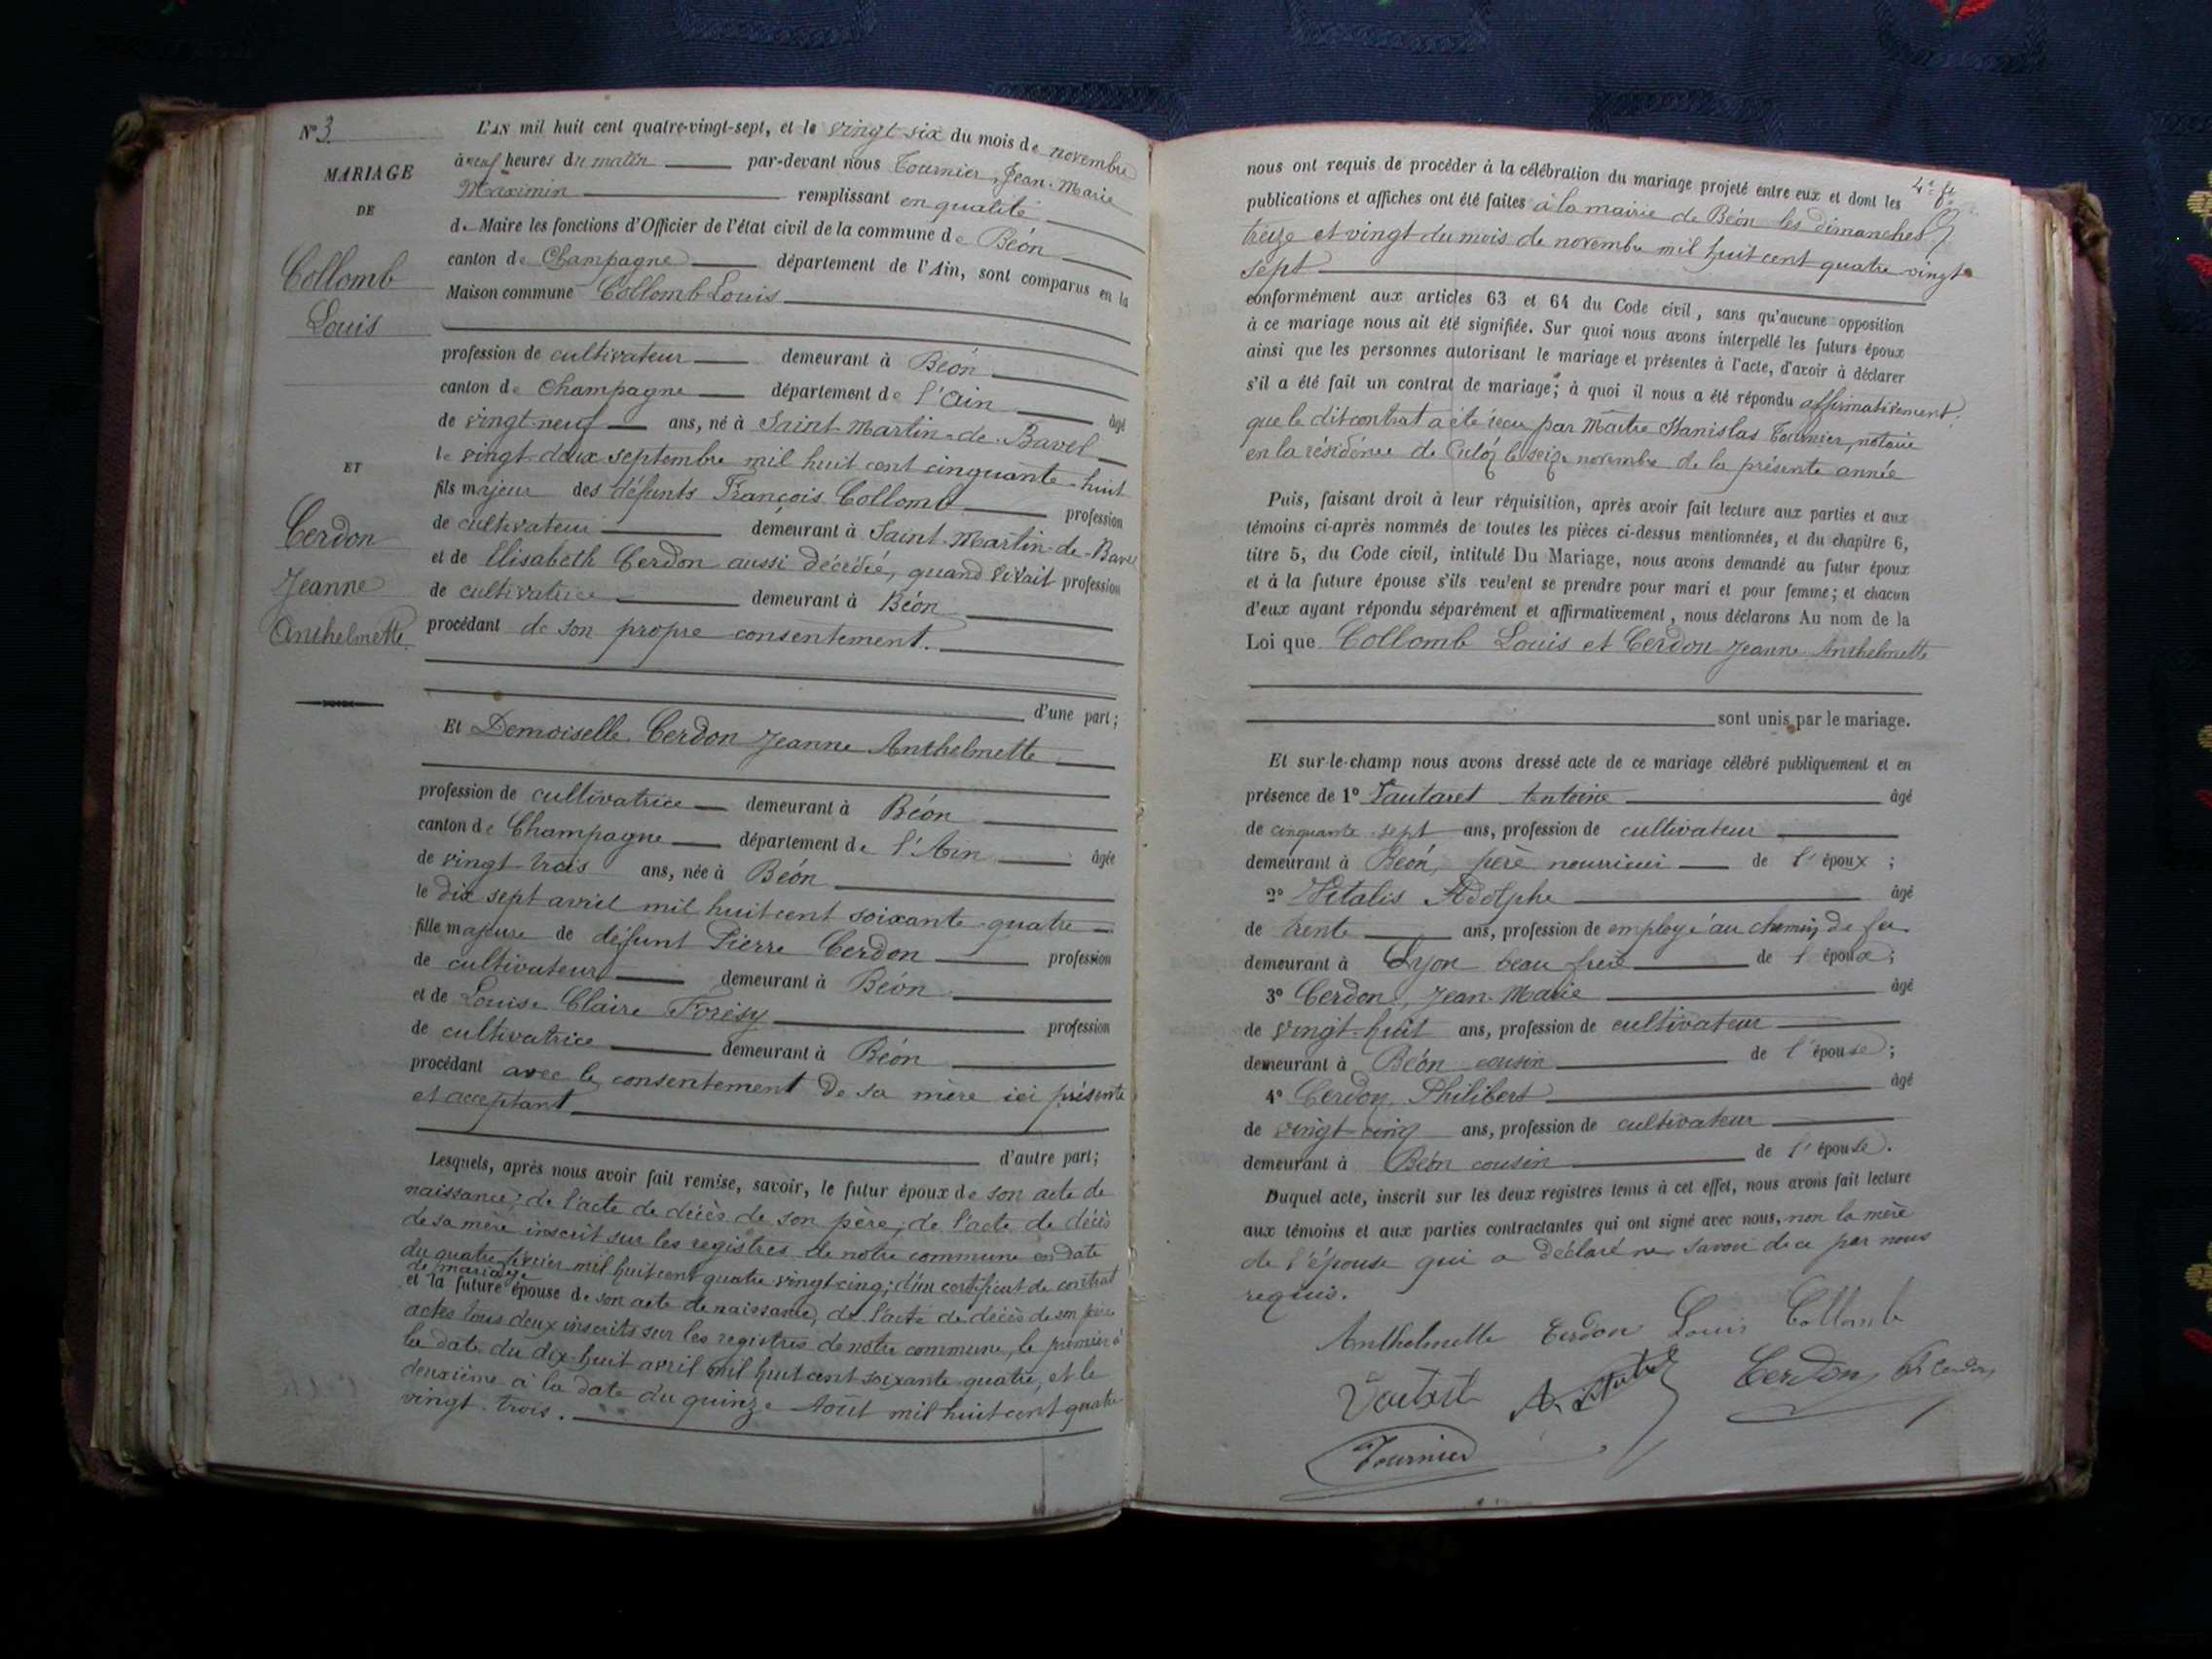 N° 3.
MARIAGE
DE
Collomb
Louis
ET
Cerdon
Jeanne
Anthelmette.
L'AN mil huit cent quatre-vingt-sept, et le vingt six du mois de novembre
à neuf heures du matin par-devant nous Tournier, Jean-Marie
Maximin remplissant en qualité
de Maire les fonctions d'Officier de l'état civil de la commune de Béon
canton de Champagne département de l'Ain, sont comparus en la
Maison commune Collomb Louis
profession de cultivateur demeurant à Béon
canton de Champagne département de l'Ain âgé
de vingt-neuf ans, né à Saint-Martin-de-Bavel
le vingt-deux septembre mil huit cent cinquante-huit
fils majeur des défunts François Collomb profession
de cultivateur demeurant à Saint-Martin-de-Bavel
et de Elisabeth Cerdon aussi décédée, quand vivait profession
de cultivatrice demeurant à Béon
procédant de son propre consentement.
d'une part;
Et Demoiselle Cerdon Jeanne Anthelmette
profession de cultivatrice demeurant à Béon
canton de Champagne département de l'Ain âgée
de vingt-trois ans, née à Béon
le dix sept avril mil huit cent soixante-quatre
fille majeure de défunt Pierre Cerdon profession
de cultivateur demeurant à Béon
et de Louise Claire Forésy profession
de cultivatrice demeurant à Béon
procédant avec le consentement de sa mère ici présente
et acceptant
d'autre part;
Lesquels, après nous avoir fait remise, savoir, le futur époux de son acte de
naissance; de l'acte de décès de son père; de l'acte de décès
de sa mère inscrit sur les registres de notre commune en date
du quatre février mil huit cent quatre vingt cinq; d'un certificat de contrat
de mariage
et la future épouse de son acte de naissance, de l'acte de décès de son père
actes tous deux inscrits sur les registres de notre commune, le premier à
la date du dix-huit avril mil huit cent soixante quatre, et le
deuxième à la date du quinze Août mil huit cent quatre
vingt-trois.
nous ont requis de procéder à la célébration du mariage projeté entre eux et dont les
publications et affiches ont été faites à la mairie de Béon les dimanches
treize et vingt du mois de novembre mil huit cent quatre-vingt
sept
conformément aux articles 63 et 64 du Code civil, sans qu'aucune opposition
à ce mariage nous ait été signifiée. Sur quoi nous avons interpellé les futurs époux
ainsi que les personnes autorisant le mariage et présentes à l'acte, d'avoir à déclarer
s'il a été fait un contrat de mariage; à quoi il nous a été répondu affirmativement:
que le dit contrat a été reçu par Maître Stanislas Tournier, notaire
en la résidence de Culoz le seize novembre de la présente année
Puis, faisant droit à leur réquisition, après avoir fait lecture aux parties et aux
témoins ci-après nommés de toutes les pièces ci-dessus mentionnées, et du chapitre 6,
titre 5, du Code civil, intitulé Du Mariage, nous avons demandé au futur époux
et à la future épouse s'ils veulent se prendre pour mari et pour femme; et chacun
d'eux ayant répondu séparément et affirmativement, nous déclarons Au nom de la
Loi que Collomb Louis et Cerdon Jeanne Anthelmette
sont unis par le mariage.
Et sur-le-champ nous avons dressé acte de ce mariage célébré publiquement et en
présence de 1° Vautaret Antoine âgé
de cinquante-sept ans, profession de cultivateur
demeurant à Béon, père nourricier de l'époux;
2° Vitalis Adolphe âgé
de trente ans, profession de employé au chemin de fer
demeurant à Lyon beau frère de l'époux;
3° Cerdon, Jean-Marie âgé
de vingt-huit ans, profession de cultivateur
demeurant à Béon cousin de l'épouse;
4° Cerdon Philibert âgé
de vingt-cinq ans, profession de cultivateur
demeurant à Béon cousin de l'épouse.
Duquel acte, inscrit sur les deux registres tenus à cet effet, nous avons fait lecture
aux témoins et aux parties contractantes qui ont signé avec nous, non la mère
de l'épouse qui a déclaré ne savoir de ce par nous
requis.
Anthelmette Cerdon Louis Collomb
Cerdon
Tournier